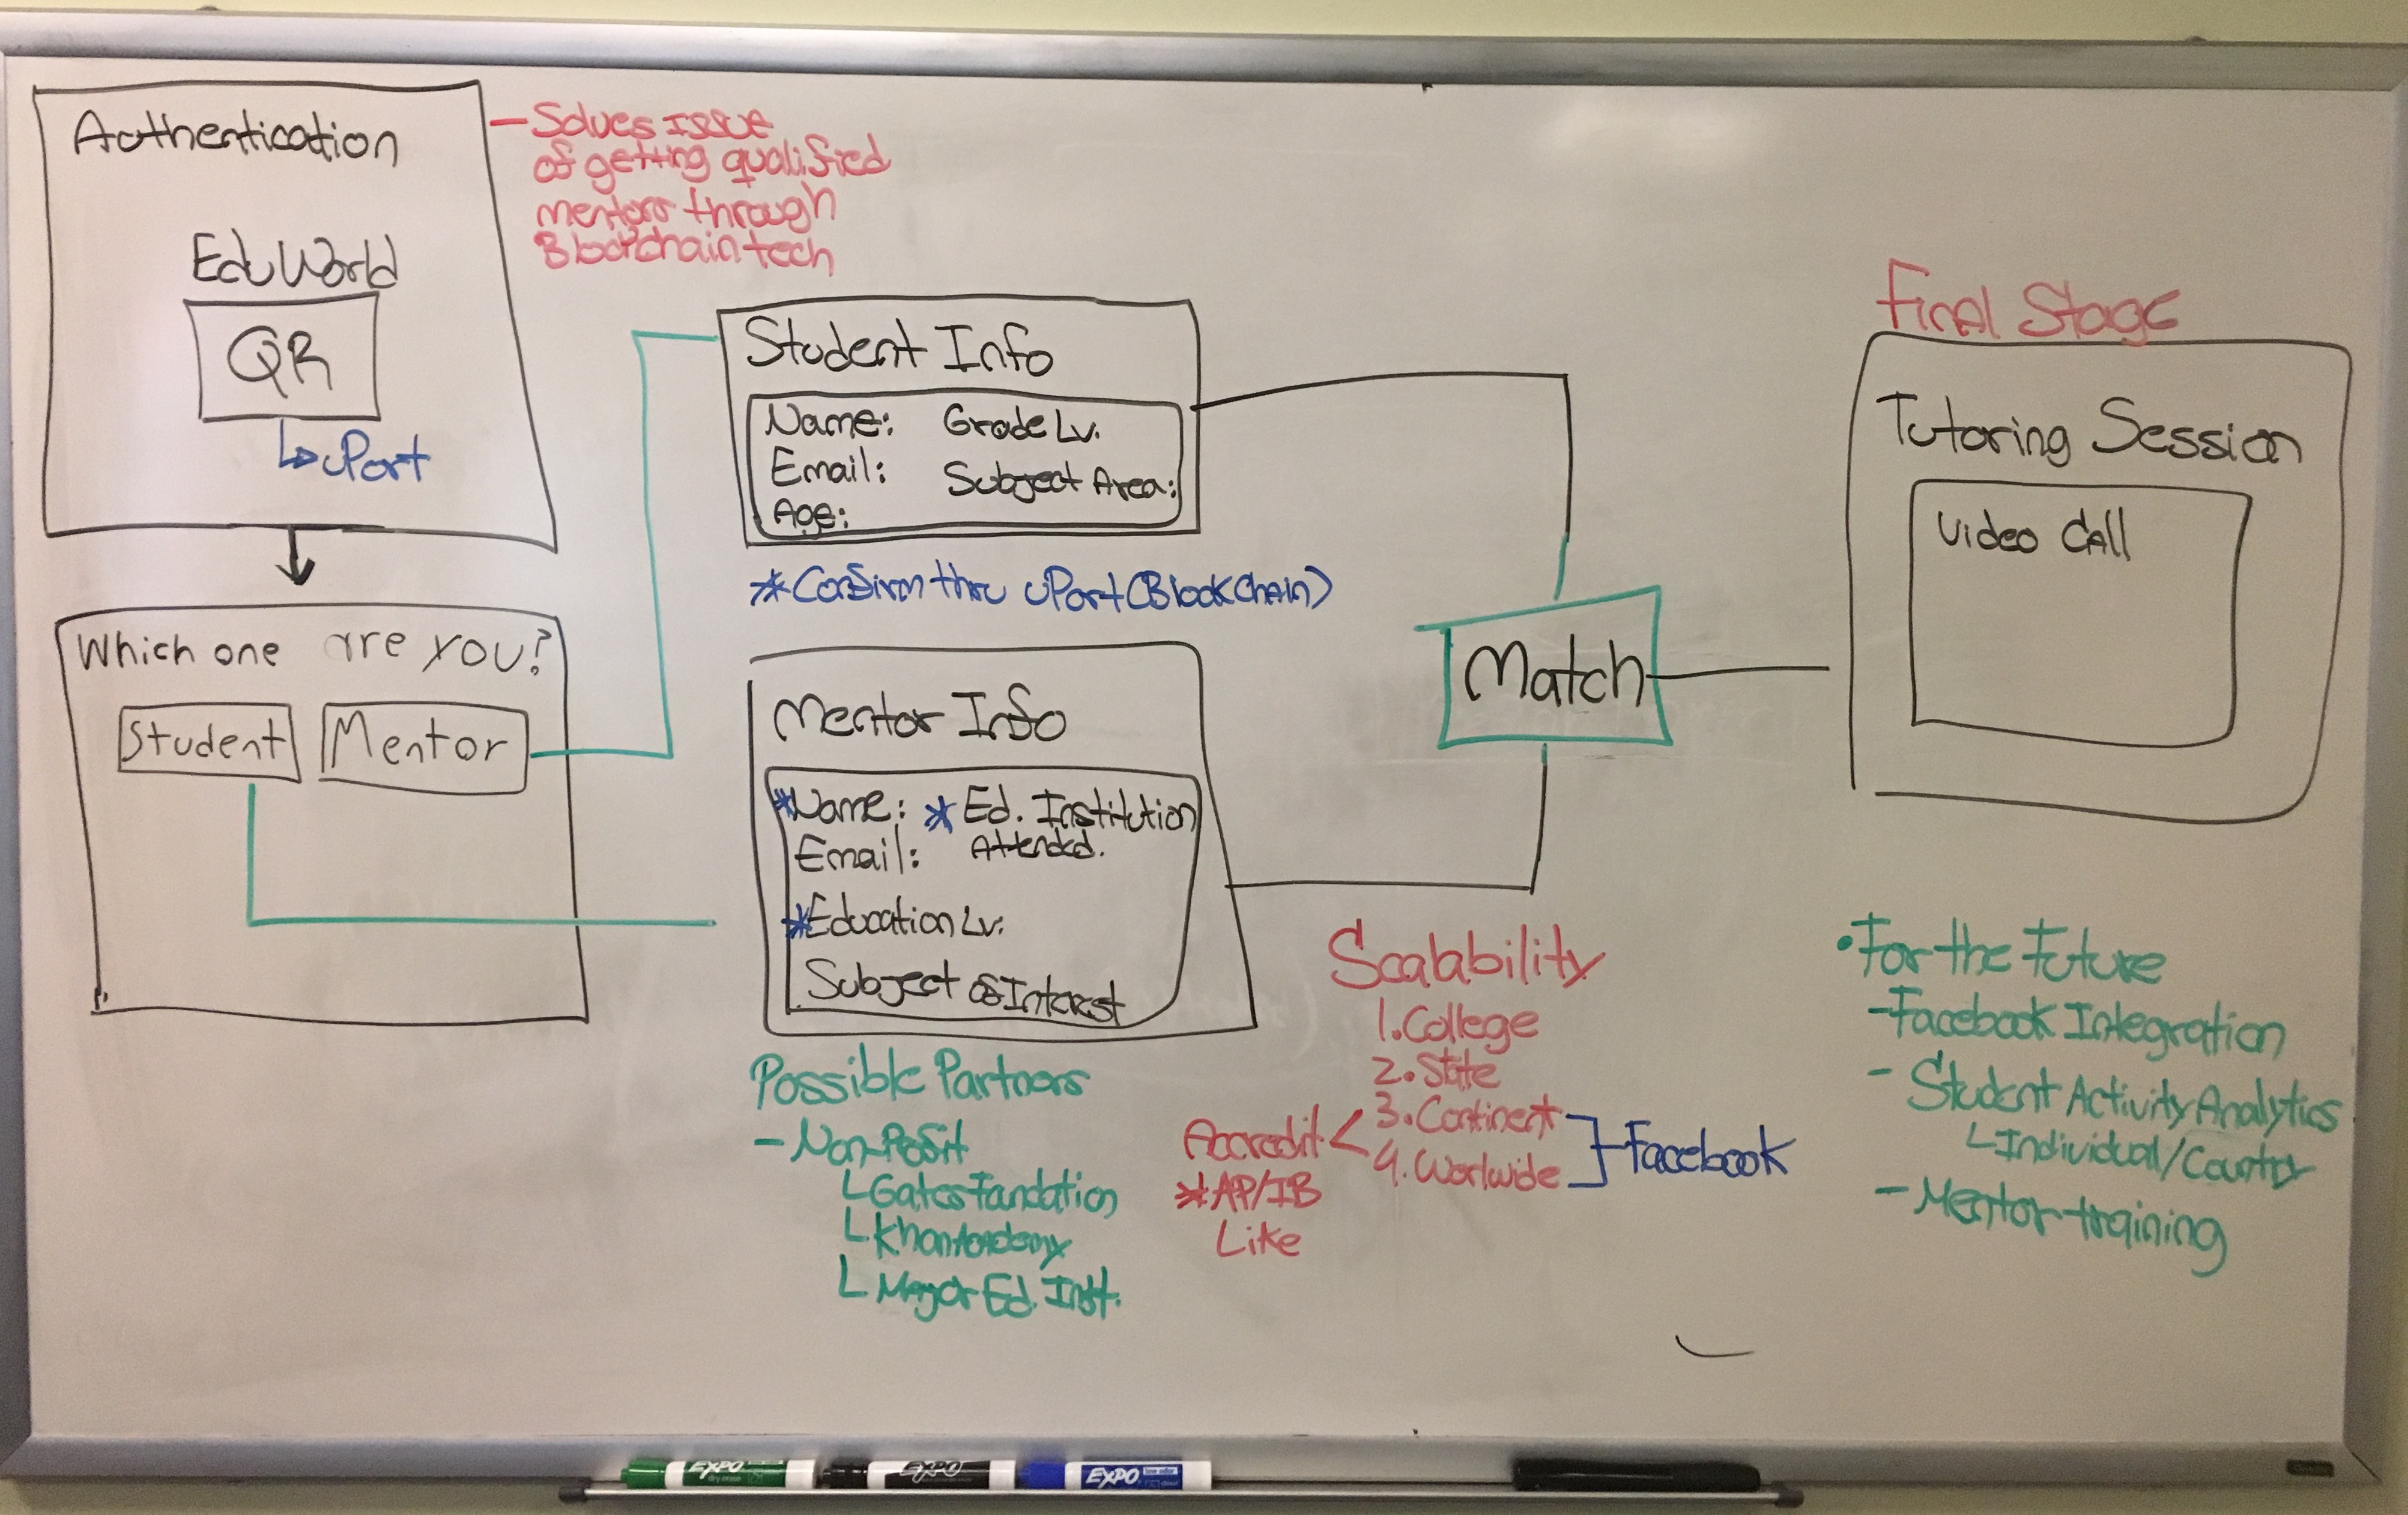 Authentication
EduWorld
QR
uPort
- Solves Issue
of getting qualified
mentors through
Blockchain tech
Which one are you?
Student
Mentor
Student Info
Name: Grade Lv.
Email: Subject Area:
Age:
*Confirm thru uPort (BlockChain)
Mentor Info
*Name: * Ed. Institution
Attended.
Email:
*Education Lv.
Subject of Interest
Match
Final Stage
Tutoring Session
Video Call
Possible Partners
- Non-Profit
Gates Fandation
Khan Academy
Major Ed. Inst.
Scalability
1. College
2. State
3. Continent
4. Worlwide
Accredit <
*AP/IB
Like
Facebook
• For the Future
- Facebook Integration
- Student Activity Analytics
Individual/Country
- Mentor training
EXPO
dry erase
EXPO
EXPO
low odor